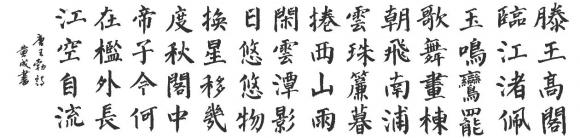 滕王高閣
臨江渚佩
玉鳴鸞罷
歌舞畫棟
朝飛南浦
雲珠簾暮
捲西山雨
閑雲潭影
日悠悠物
換星移幾
度秋閣中
帝子今何
在檻外長
江空自流
唐王勃詩